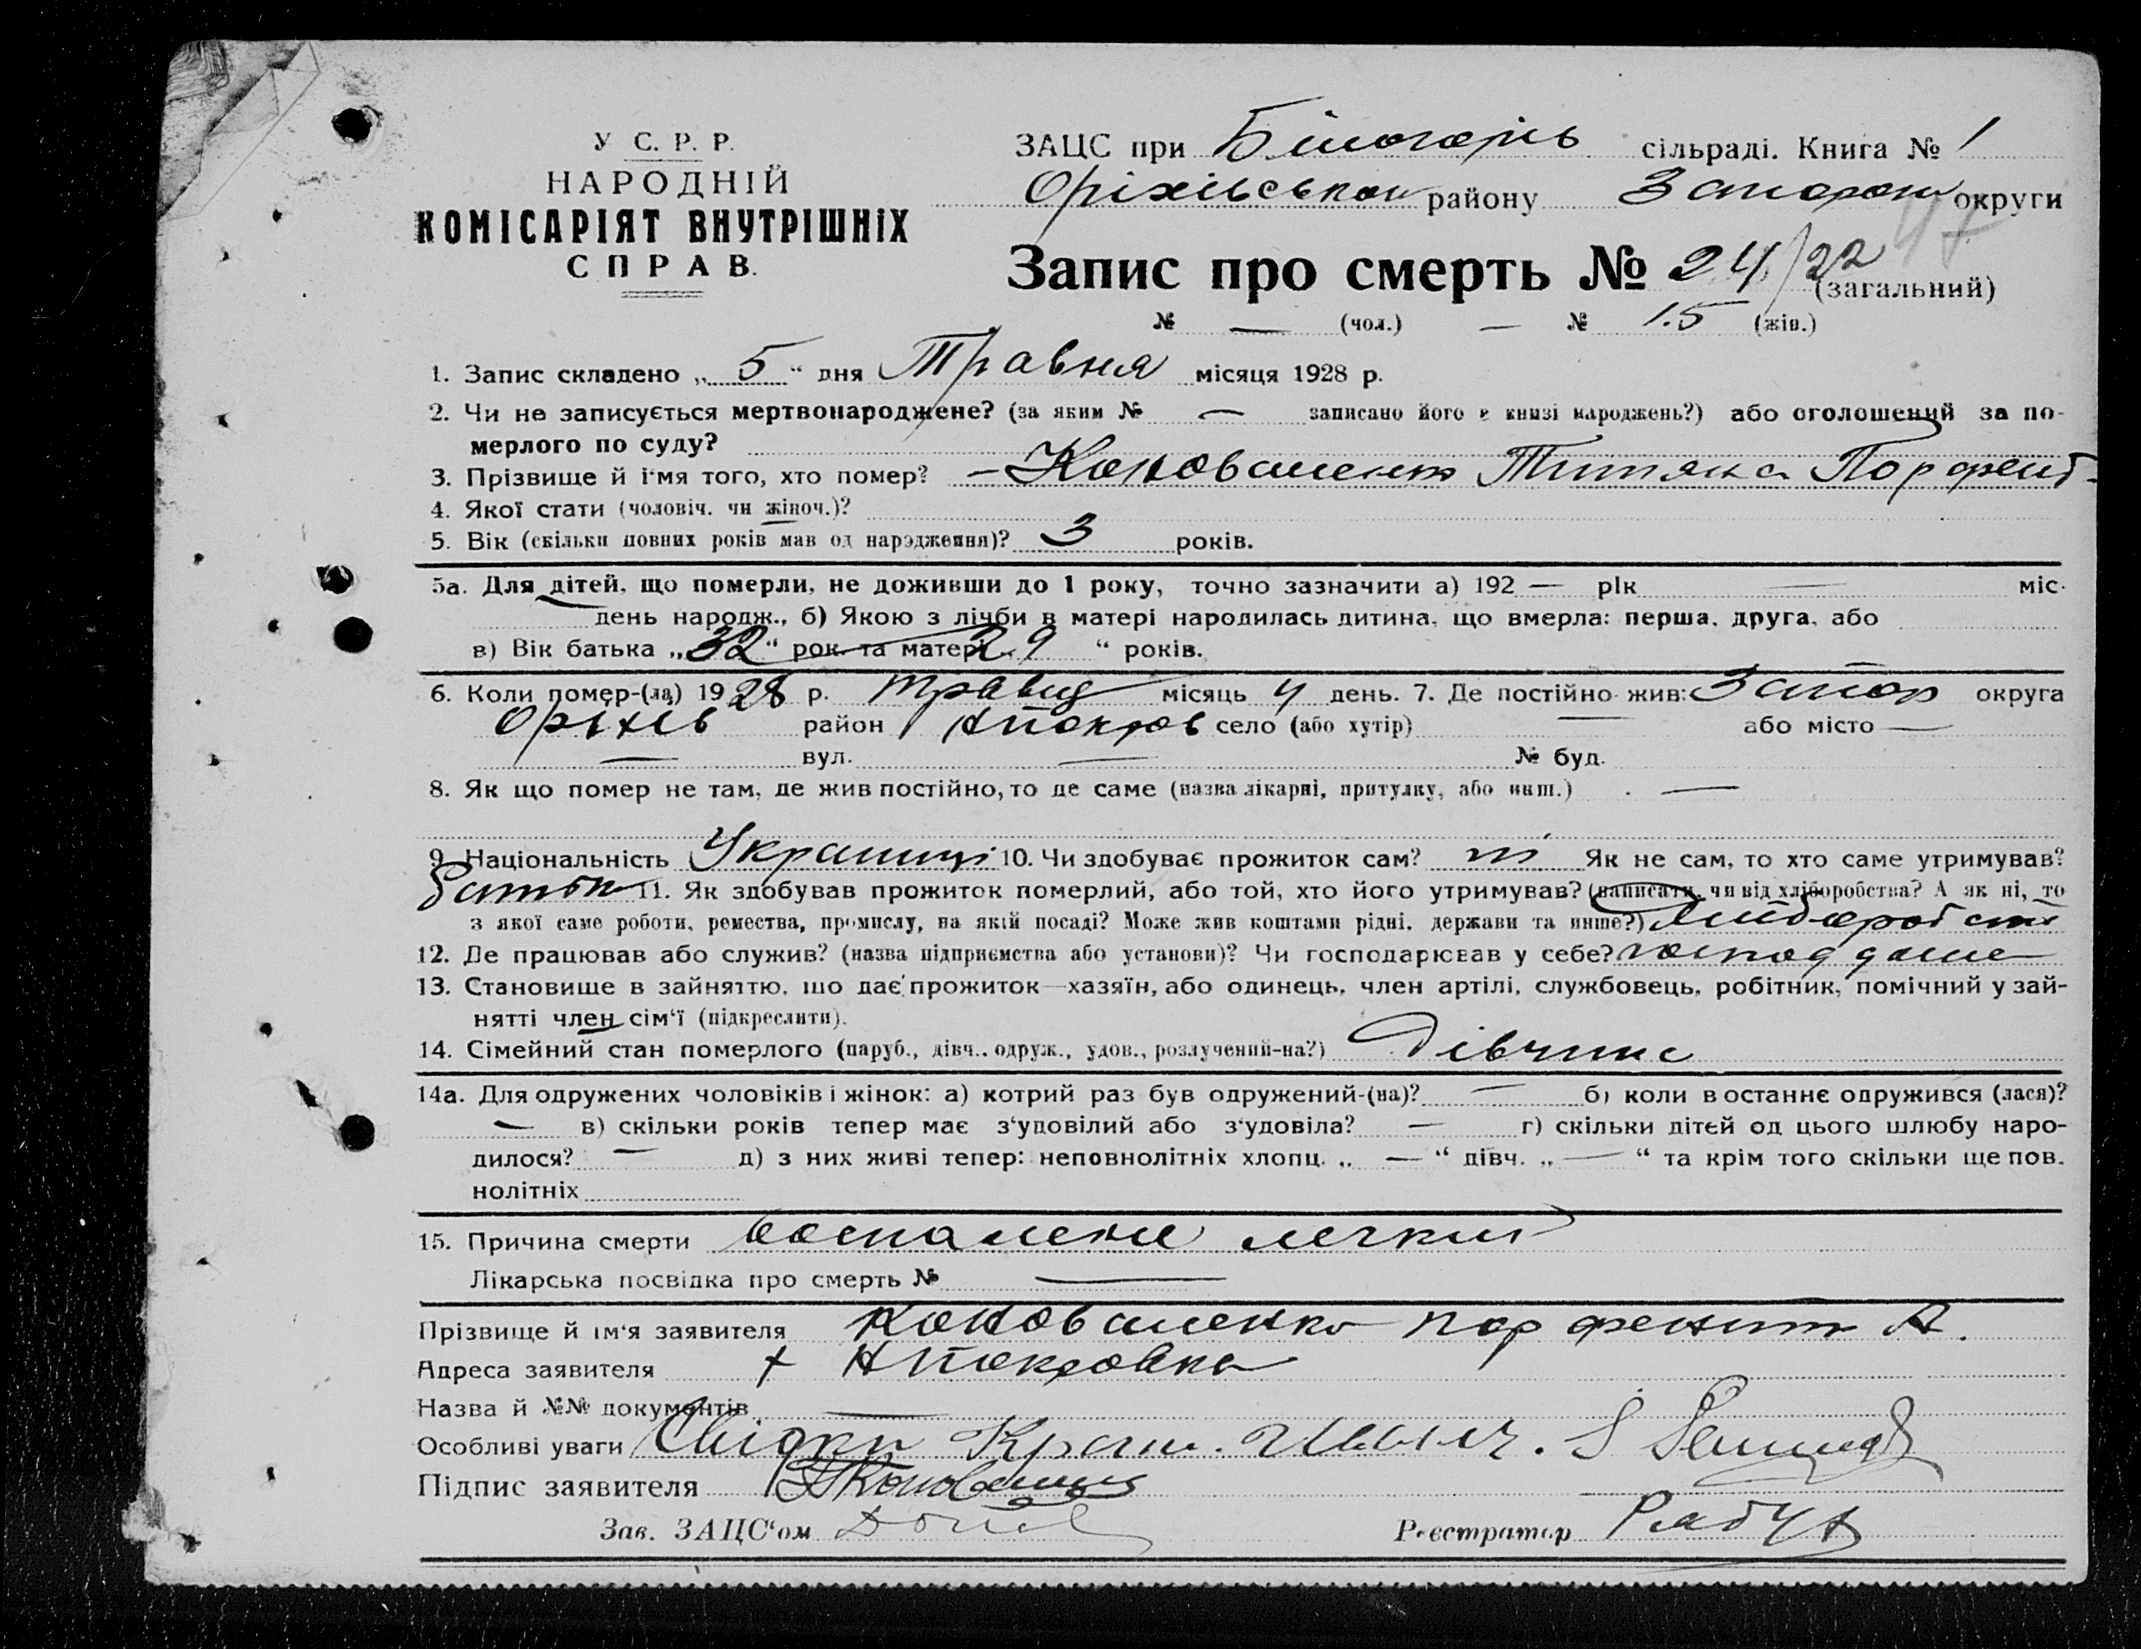 У С. Р. Р.
НАРОДНІЙ
КОМІСАРІЯТ ВНУТРІШНІХ
СПРАВ.
ЗАЦС при Білогорів сільраді. Книга № 1
Оріхівськом району Запорож округи
47
Запис про смерть № 24/22
(загальний)
№ — (чол.) — № 15 (жін.)
1. Запис складено „ 5 “ дня Травня місяця 1928 р.
2. Чи не записується мертвонароджене? (за яким № — записано його в книзі народжень?) або оголошений за по-
мерлого по суду?
3. Прізвище й ім'я того, хто помер? – Коноваленко Титяна Порфент-
4. Якої стати (чоловіч. чи жіноч.)?
5. Вік (скільки повних років мав од народження)? 3 років.
5а. Для дітей, що померли, не доживши до 1 року, точно зазначити а) 192 — рік — міс.
день народж., б) Якою з лічби в матері народилась дитина, що вмерла: перша, друга, або
в) Вік батька „ 32 “ рок. та матері „ 29 “ років.
6. Коли помер-(ла) 1928 р. травня місяць 4 день. 7. Де постійно жив: Запор округа
Оріхів район Нпокров село (або хутір) — або місто —
— вул. — № буд.
8. Як що помер не там, де жив постійно, то де саме (назва лікарні, притулку, або инш.) —
9. Національність Українці 10. Чи здобуває прожиток сам? ні Як не сам, то хто саме утримував?
батьк 11. Як здобував прожиток померлий, або той, хто його утримував? (написати, чи від хліборобства? А як ні, то
з якої саме роботи, ремества, промислу, на якій посаді? Може жив коштами рідні, держави та инше?) хліборобств
12. Де працював або служив? (назва підприємства або установи)? Чи господарював у себе? господ дома
13. Становище в зайняттю, що дає прожиток—хазяїн, або одинець, член артілі, службовець, робітник, помічний у зай-
нятті член сім'ї (підкреслити).
14. Сімейний стан померлого (паруб., дівч., одруж., удов., розлучений-на?) Дівчина
14а. Для одружених чоловіків і жінок: а) котрий раз був одружений-(на)? — б) коли в останнє одружився (лася)?
— в) скільки років тепер має з'уповілий або з'удовіла? — г) скільки дітей од цього шлюбу наро-
дилося? — д) з них живі тепер: неповнолітніх хлопц. „ — “ дівч. „ — “ та крім того скільки ще пов.
нолітніх
15. Причина смерти воспалени легких
Лікарська посвідка про смерть № —
Прізвище й ім'я заявителя Коноваленко Порфентт А.
Адреса заявителя х Нпокровка
Назва й №№ документів —
Особливі уваги Свідки
Підпис заявителя Коновалин
Зав. ЗАЦС'ом
Реєстратор